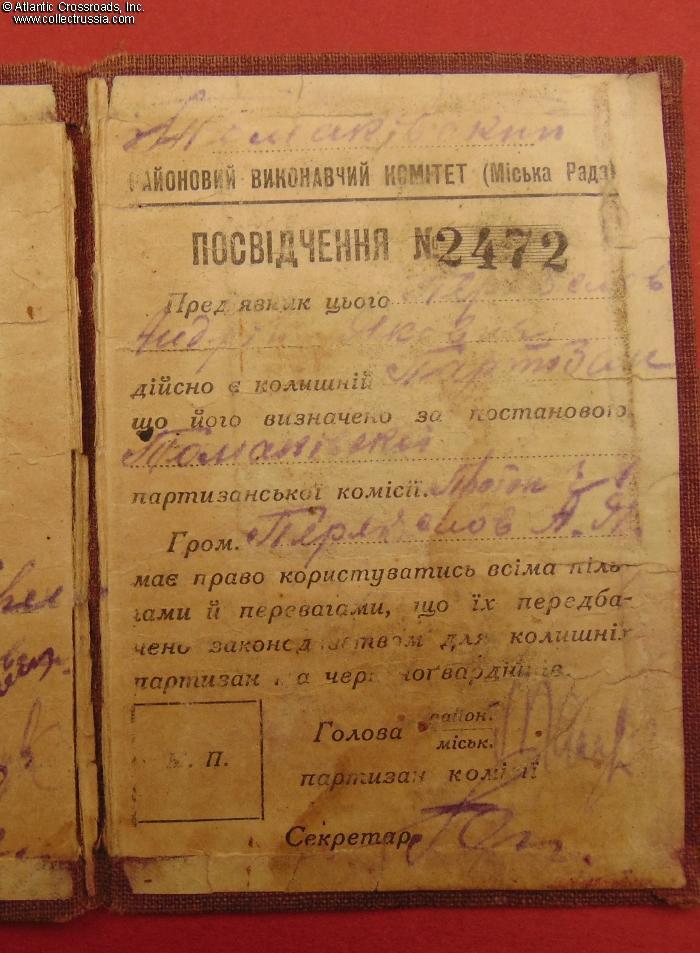 © Atlantic Crossroads, Inc.
www.collectrussia.com
Томаківский
РАЙОНОВИЙ ВИКОНАВЧИЙ КОМІТЕТ (Міська Рада)
ПОСВІДЧЕННЯ № 2472
Пред'явник цього
Андрій Якович
дійсно є колишній Партизан
що його визначено за постановою
Томаківской
партизанської комісії.
Гром. А. Я.
має право користуватись всіма піль-
гами й перевагами, що їх передба-
чено законодавством для колишніх
партизан та червоногвардійців.
М. П.
Голова район.
міськ.
партизан комісії
Секретар